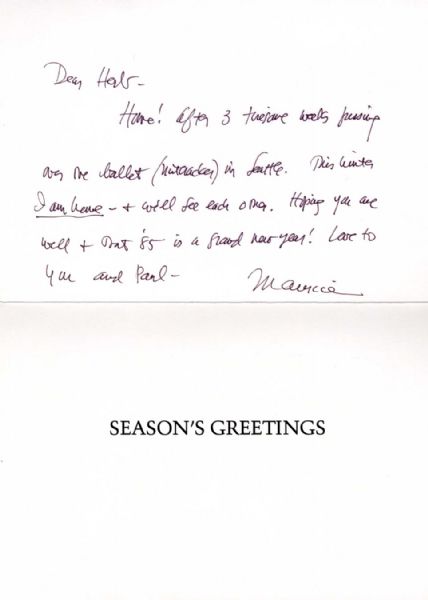 Dear Herb -
Home! After 3 tiresome weeks fussing
over the ballet (Nutcracker) in Seattle. This winter
I am home - + we'll see each other. Hoping you are
well + that '85 is a grand new year! Love to
you and Paul -
Maurice
SEASON'S GREETINGS